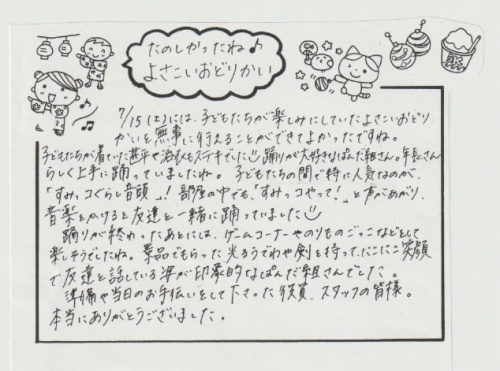 たのしかったね♪
よさこいおどりかい
7/15(土)には、子どもたちが楽しみにしていたよさこいおどり
かいを無事に行えることができてよかったですね。
子どもたちが着ていた甚平や浴衣もステキでした 踊りが大好きなぱんだ組さん。年長さん
らしく上手に踊っていましたね。子どもたちの間で特に人気なのが、
「すみっコぐらし音頭」! 部屋の中でも「すみっコやって!」と声があがり、
音楽をかけると友達と一緒に踊っていました
踊りが終わったあとには、ゲームコーナーやのりものごっこなどをして
楽しそうでしたね。景品でもらった光るうでわや剣を持って、にこにこ笑顔
で友達と話している姿が印象的なぱんだ組さんでした。
準備や当日のお手伝いをして下さった役員、スタッフの皆様。
本当にありがとうございました。